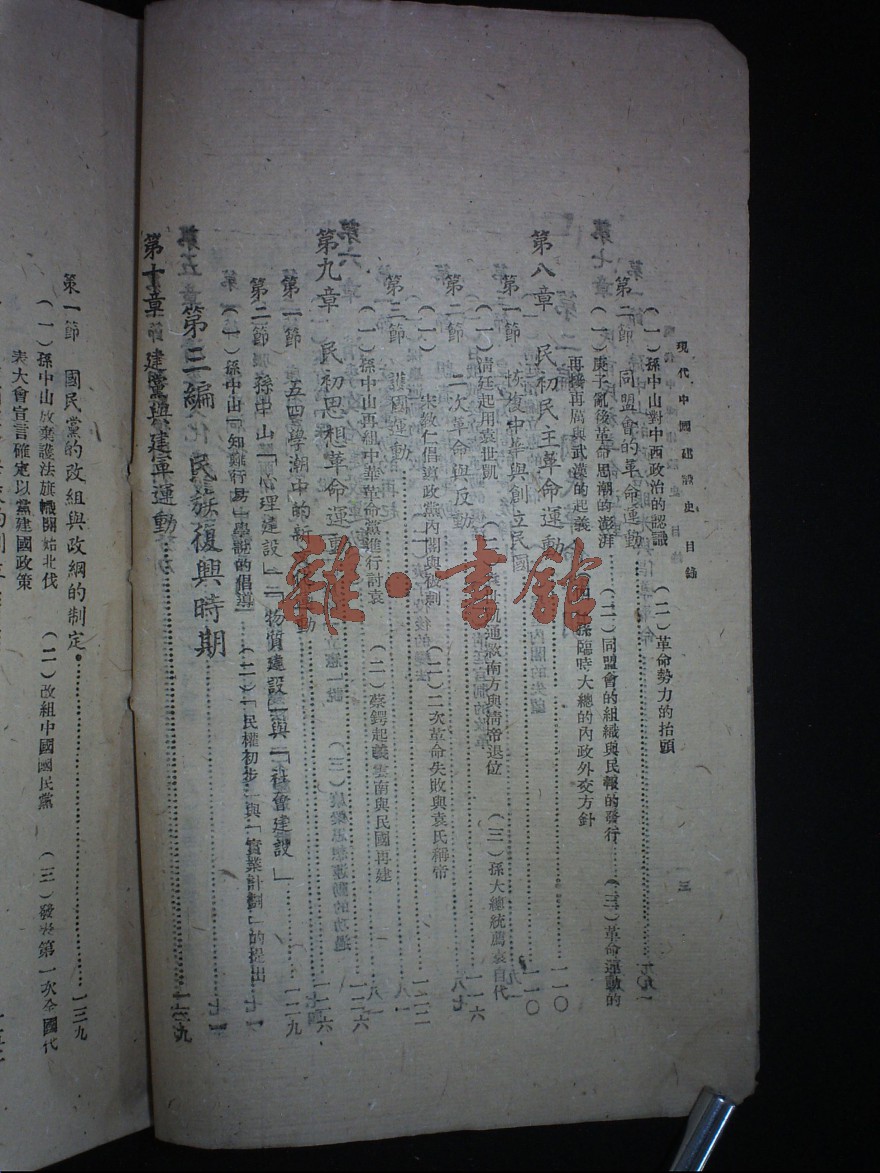 現代中國建設史 目錄 三
(一)孫中山對中西政治的認識 (二)革命勢力的抬頭
第二節 同盟會的革命運動
(一)庚子亂後革命思潮的澎湃 (二)同盟會的組織與民報的發行 (三)革命運動的
再接再厲與武漢的起義 (四)孫臨時大總的內政外交方針
第八章 民初民主革命運動 一一〇
第一節 恢復中華與創立民國 一一〇
(一)清廷起用袁世凱 南方與清帝退位 (三)孫大總統薦袁自代
第二節 二次革命與反動 一一六
(一)宋教仁倡導政黨內閣與被刺 (二)二次革命失敗與袁氏稱帝
第三節 護國運動 一二二
(一)孫中山再組中華革命黨進行討袁 (二)蔡鍔起義雲南與民國再建
第九章 民初思想革命運動 一二六
第一節 五四學潮中的新 動 一二六
第二節 孫中山「心理建設」「物質建設」與「社會建設」 一二九
(一)孫中山「知難行易」學說的倡導 (二)「民權初步」與「實業計劃」的提出
第三編 民族復興時期
第十章 建黨與建軍運動 一三九
第一節 國民黨的改組與政綱的制定 一三九
(一)孫中山放棄護法旗幟開始北伐 (二)改組中國國民黨 (三)發表第一次全國代
表大會宣言確定以黨建國政策
雜·書館